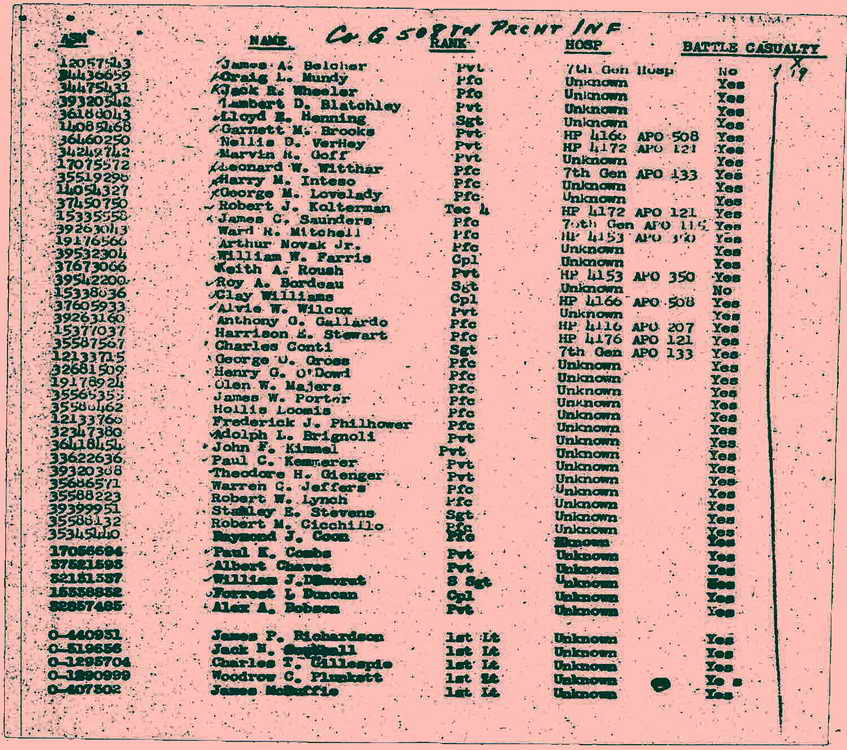 Co G 508TH PRCHT INF
ASN NAME RANK HOSP BATTLE CASUALTY
12057543 James A. Belcher Pvt 7th Gen Hosp No
34436659 Craig L. Mundy Pfc Unknown Yes
34475431 Jack R. Wheeler Pfc Unknown Yes
39320542 Lambert D. Blatchley Pvt Unknown Yes
36188043 Lloyd E. Henning Sgt Unknown Yes
14085468 Garnett M. Brooks Pvt HP 4166 APO 508 Yes
36460250 Nellis D. VerHey Pvt HP 4172 APO 121 Yes
34249742 Marvin H. Goff Pvt Unknown Yes
17075572 Leonard W. Witthar Pfc 7th Gen APO 133 Yes
35519298 Harry M. Inteso Pfc Unknown Yes
14054327 George M. Lovelady Pfc Unknown Yes
37450750 Robert J. Kolterman Tec 4 HP 4172 APO 121 Yes
15335558 James C. Saunders Pfc Gen APO Yes
39263043 Ward R. Mitchell Pfc HP 4153 APO Yes
19176566 Arthur Novak Jr. Pfc Unknown Yes
39532304 William W. Farris Cpl Unknown Yes
37673066 Keith A. Roush Pvt HP 4153 APO 350 Yes
39542200 Roy A. Bordeau Sgt Unknown No
Clay Williams Cpl HP 4166 APO 508 Yes
37605933 Alvie W. Wilcox Pvt Unknown Yes
39263160 Anthony G. Gallardo Pfc HP 4116 APO 207 Yes
15377037 Harrison E. Stewart Pfc HP 4176 APO 121 Yes
35587567 Charles Conti Sgt 7th Gen APO 133 Yes
12133715 George O. Gross Pfc Unknown Yes
32681509 Henry G. O'Dowd Pfc Unknown Yes
19178924 Olen W. Majers Pfc Unknown Yes
35565355 James W. Porter Pfc Unknown Yes
35580462 Hollis Loomis Pfc Unknown Yes
12133766 Frederick J. Philhower Pfc Unknown Yes
32347380 Adolph L. Brignoli Pvt Unknown Yes
36418454 John F. Kimmel Pvt Unknown Yes
33622636 Paul C. Kemmerer Pvt Unknown Yes
39320388 Theodore H. Gienger Pvt Unknown Yes
35686571 Warren C. Jeffers Pfc Unknown Yes
35588223 Robert W. Lynch Pfc Unknown Yes
39399951 Stanley E. Stevens Sgt Unknown Yes
35588132 Robert M. Cicchillo Pfc Unknown Yes
35345440 Raymond J. Coon Pfc Unknown Yes
17056694 Paul K. Combs Pvt Unknown Yes
37521593 Albert Chaves Pvt Unknown Yes
32151537 William J. S Sgt Unknown Yes
15338852 Forrest L Duncan Cpl Unknown Yes
32857485 Alex A. Pvt Unknown Yes
O-440931 James P. Richardson 1st Lt Unknown Yes
O-519656 Jack N. 1st Lt Unknown Yes
O-1295704 Charles T. Gillespie 1st Lt Unknown Yes
O-1290999 Woodrow C. Plunkett 1st Lt Unknown Ye s
O-407302 James McDuffie 1st Lt Unknown Yes